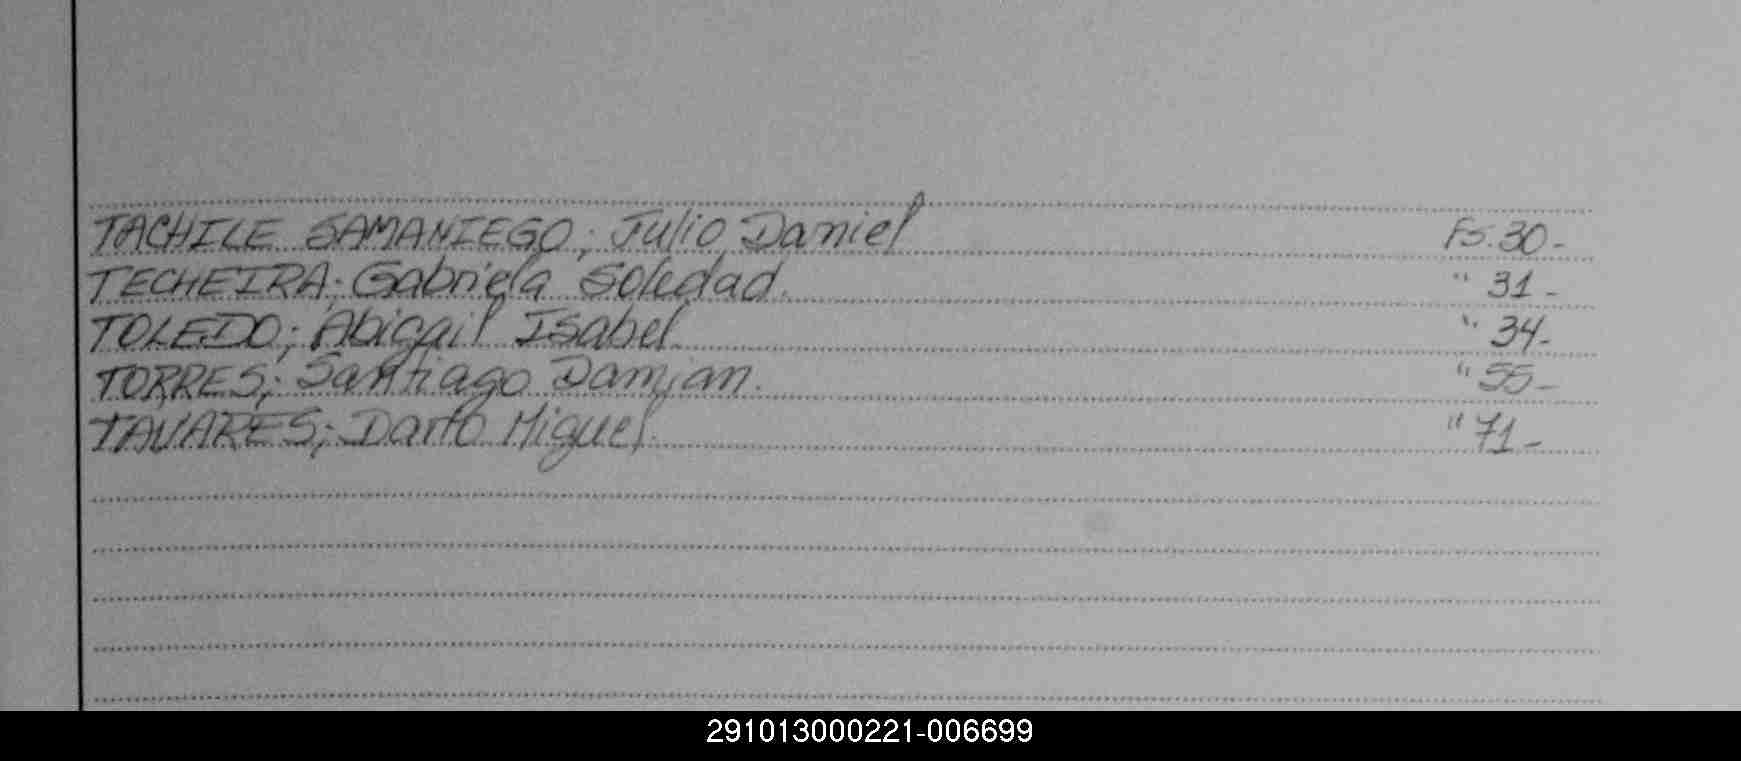 TACHILE SAMANIEGO; Julio Daniel Fs. 30-
TECHEIRA; Gabriela Soledad. " 31-
TOLEDO; Abigail Isabel. " 34-
TORRES; Santiago Damian. " 55-
TAVARES; Darío Miguel. " 71-
291013000221-006699